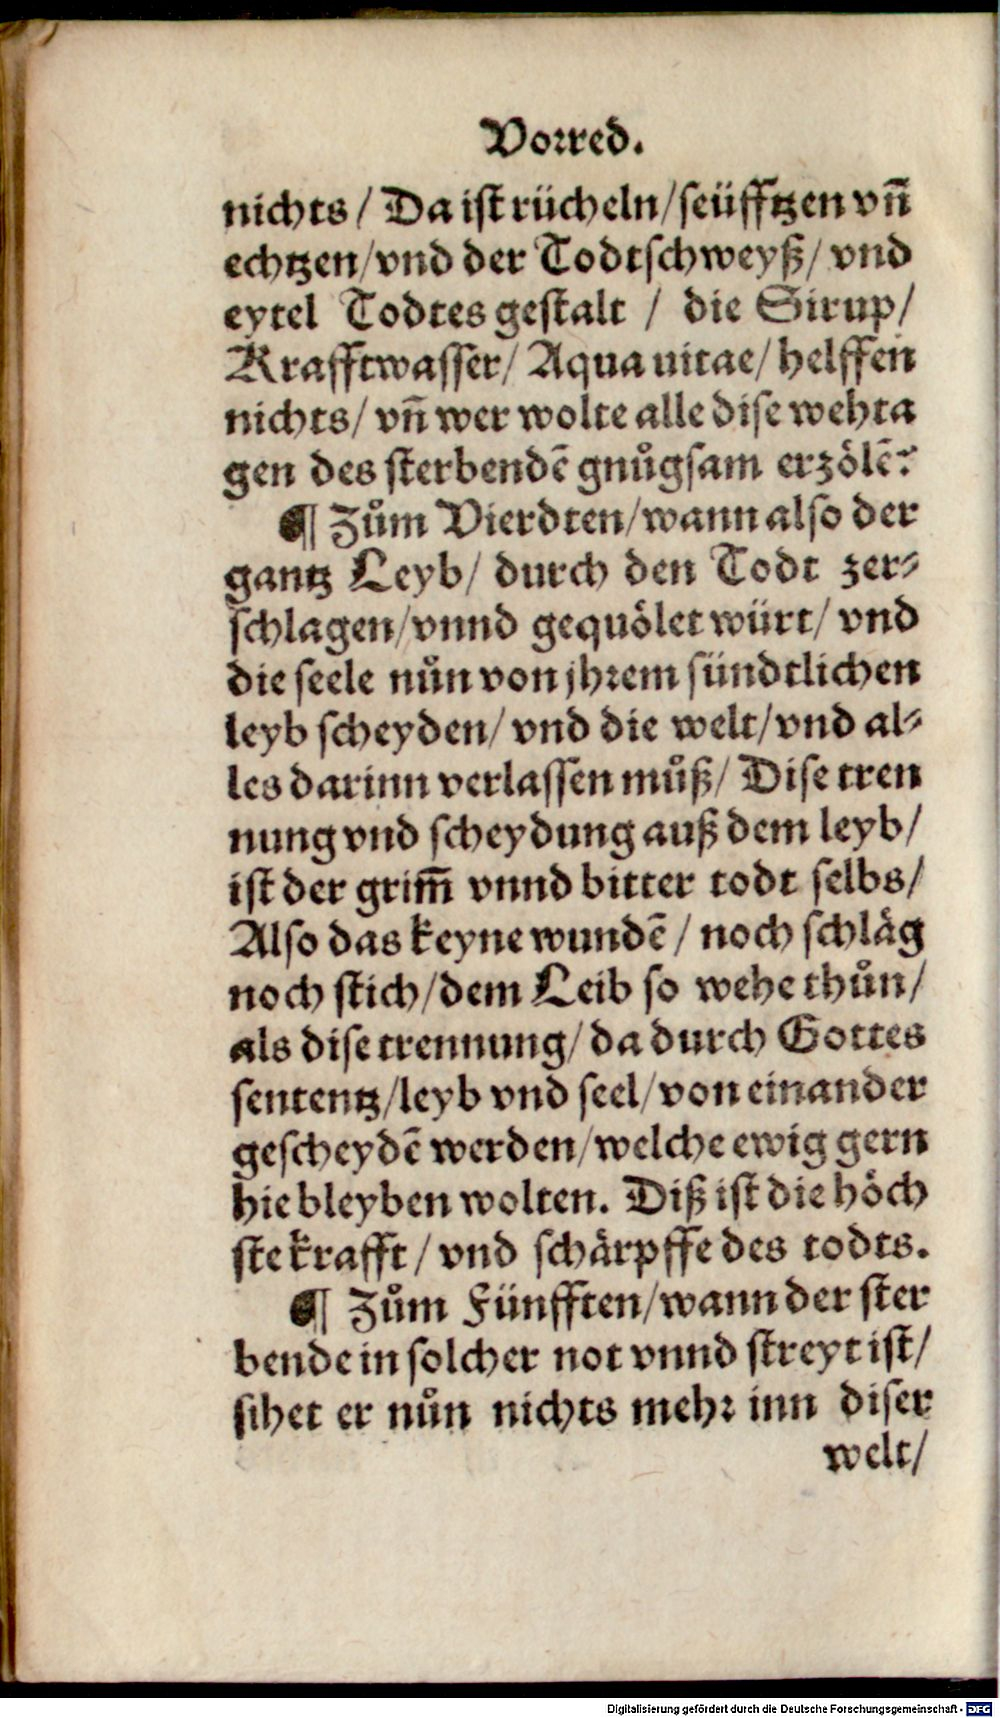 Vorred.
nichts / Da ist rücheln/seüfftzen vñ
echtzen/vnd der Todtschweyß/ vnd
eytel Todtes gestalt / die Sirup/
Krafftwasser/ Aqua uitae/ helffen
nichts/ vñ wer wolte alle dise wehta
gen des sterbendē gnůgsam erzölē?
¶ Zům Vierdten/wann also der
gantz Leyb/ durch den Todt zer⸗
schlagen/vnnd gequölet würt/ vnd
die seele nůn von jhrem sündtlichen
leyb scheyden/ vnd die welt/vnd al⸗
les darinn verlassen můß/ Dise tren
nung vnd scheydung auß dem leyb/
ist der grim̄ vnnd bitter todt selbs/
Also das keyne wundē / noch schläg
noch stich/dem Leib so wehe thůn/
als dise trennung/da durch Gottes
sententz/leyb vnd seel/von einander
gescheydē werden/welche ewig gern
hie bleyben wolten. Diß ist die höch
ste krafft / vnd schärpffe des todts.
¶ Zům Fünfften/wann der ster
bende in solcher not vnnd streyt ist/
sihet er nůn nichts mehr inn diser
welt/
Digitalisierung gefördert durch die Deutsche Forschungsgemeinschaft - DFG